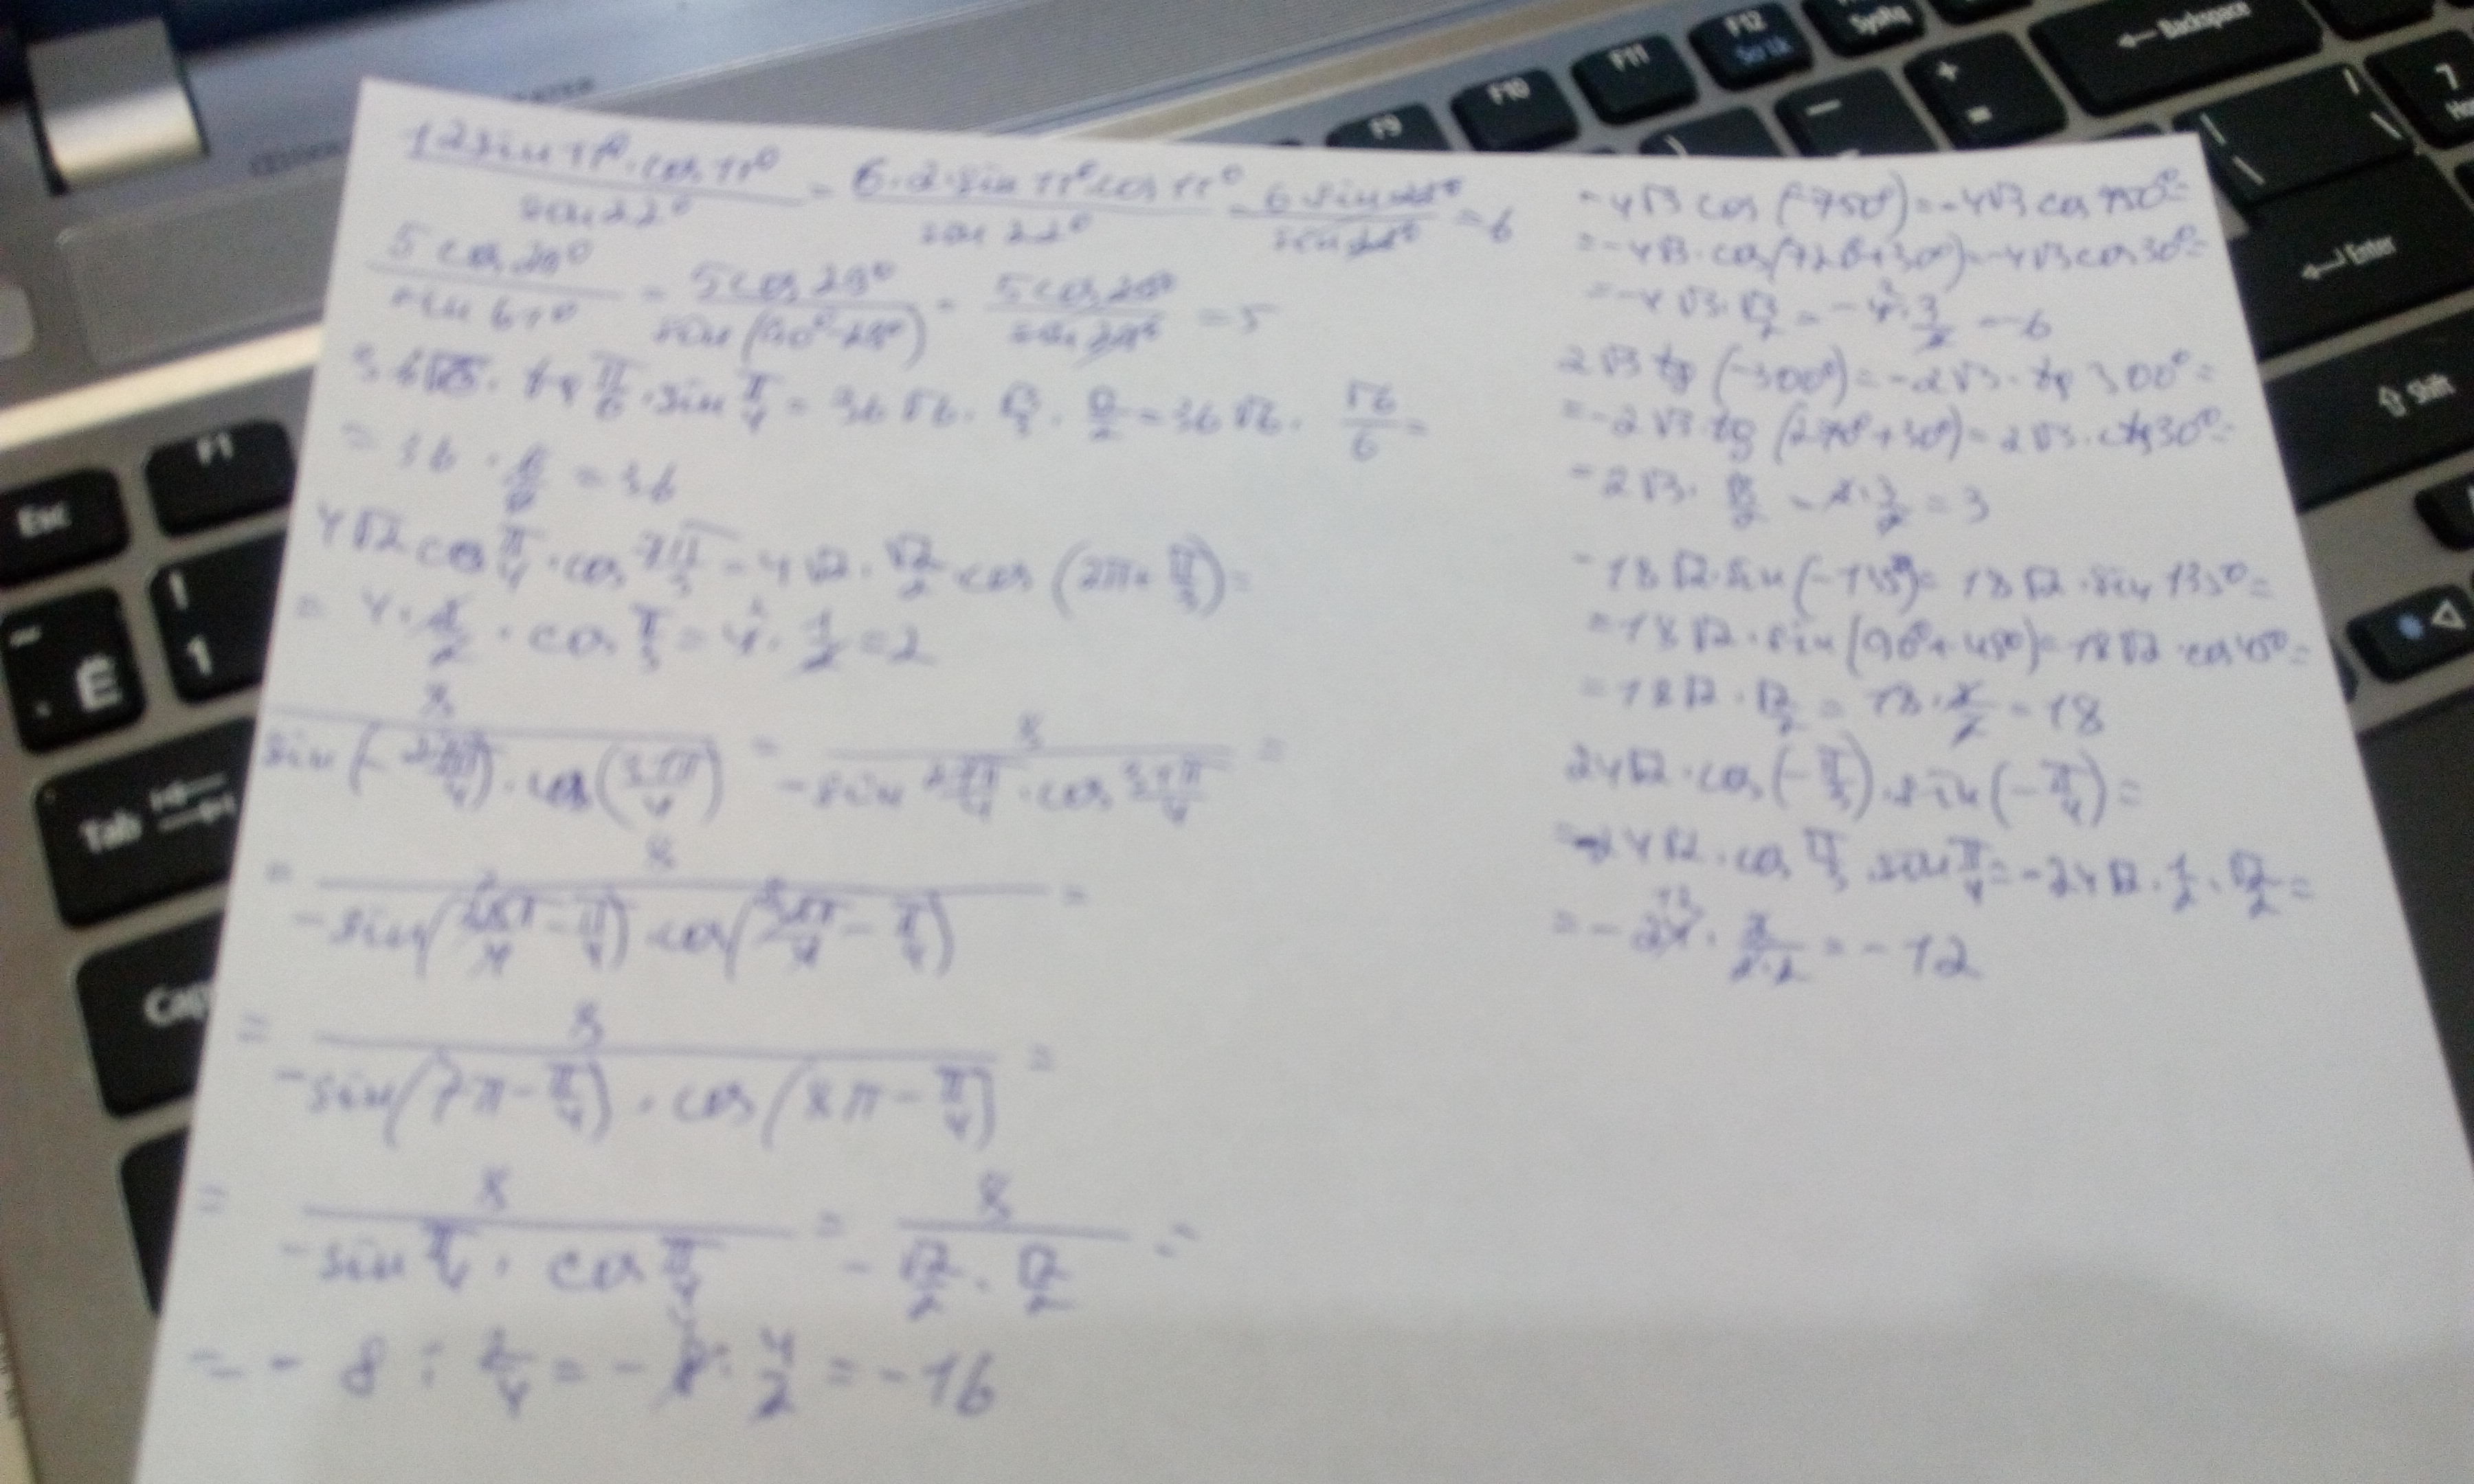 12 sin 11° · cos 11° / sin 22° = 6 · 2 · sin 11° cos 11° / sin 22° = 6 sin 22° / sin 22° = 6
5 cos 29° / sin 61° = 5 cos 29° / sin (90° - 29°) = 5 cos 29° / sin 29° = 5
36√6 · tg π/6 · sin π/4 = 36√6 · √3/3 · √2/2 = 36√6 · √6/6 =
= 36 · 6/6 = 36
4√2 cos π/4 · cos 7π/3 = 4√2 · √2/2 cos (2π + π/3) =
= 4 · 2/2 · cos π/3 = 4 · 1/2 = 2
8 / sin (- 27π/4) · cos (31π/4) = 8 / - sin 27π/4 · cos 31π/4 =
= 8 / - sin (28π/4 - π/4) · cos (32π/4 - π/4) =
= 8 / - sin (7π - π/4) · cos (8π - π/4) =
= 8 / - sin π/4 · cos π/4 = 8 / - √2/2 · √2/2 =
= - 8 : 2/4 = - 8 · 4/2 = - 16
- 4√3 cos (-750°) = - 4√3 cos 750° =
= - 4√3 · cos (720° + 30°) = - 4√3 cos 30° =
= - 4√3 · √3/2 = - 4 · 3/2 = - 6
2√3 tg (-300°) = - 2√3 · tg 300° =
= - 2√3 · tg (270° + 30°) = 2√3 · ctg 30° =
= 2√3 · √3/2 = 2 · 3/2 = 3
- 18√2 · sin (-135°) = 18√2 · sin 135° =
= 18√2 · sin (90° + 45°) = 18√2 · cos 45° =
= 18√2 · √2/2 = 18 · 2/2 = 18
24√2 · cos (- π/3) · sin (- π/4) =
= - 24√2 · cos π/3 · sin π/4 = - 24√2 · 1/2 · √2/2 =
= - 24 · 2/2·2 = - 12
F1
F9
F10
F11
F12
SysRq
Backspace
Enter
Shift
Esc
Tab
1
Ё
7